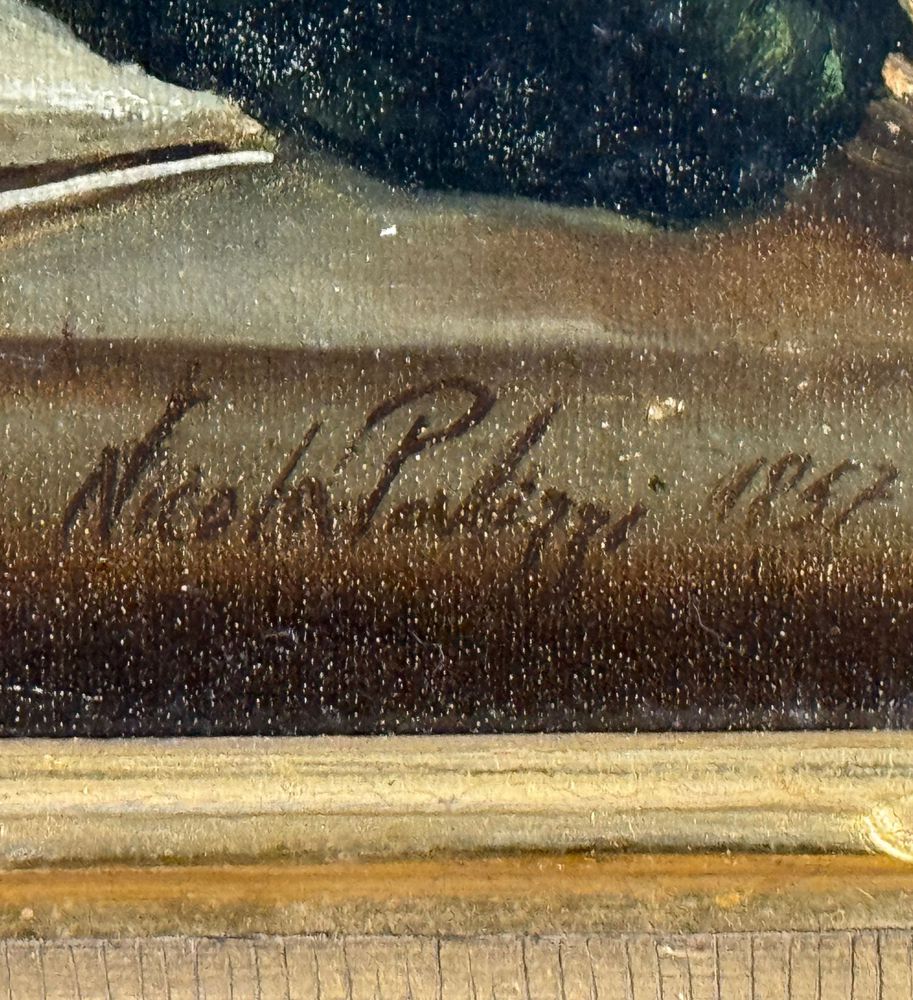 Nicola Palizzi 1857